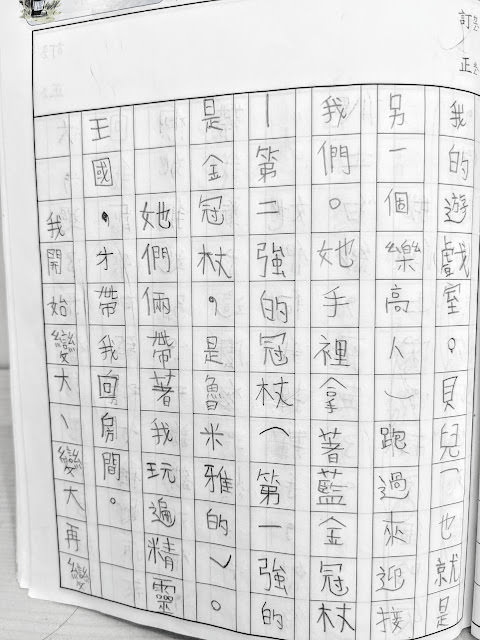 訂
正
我的遊戲室。貝兒（也就是
另一個樂高人）跑過來迎接
我們。她手裡拿著藍金冠杖
—第二強的冠杖（第一強的
是金冠杖，是魯米雅的）。
她們倆帶著我玩遍精靈
王國，才帶我回房間。
我開始變大、變大再變